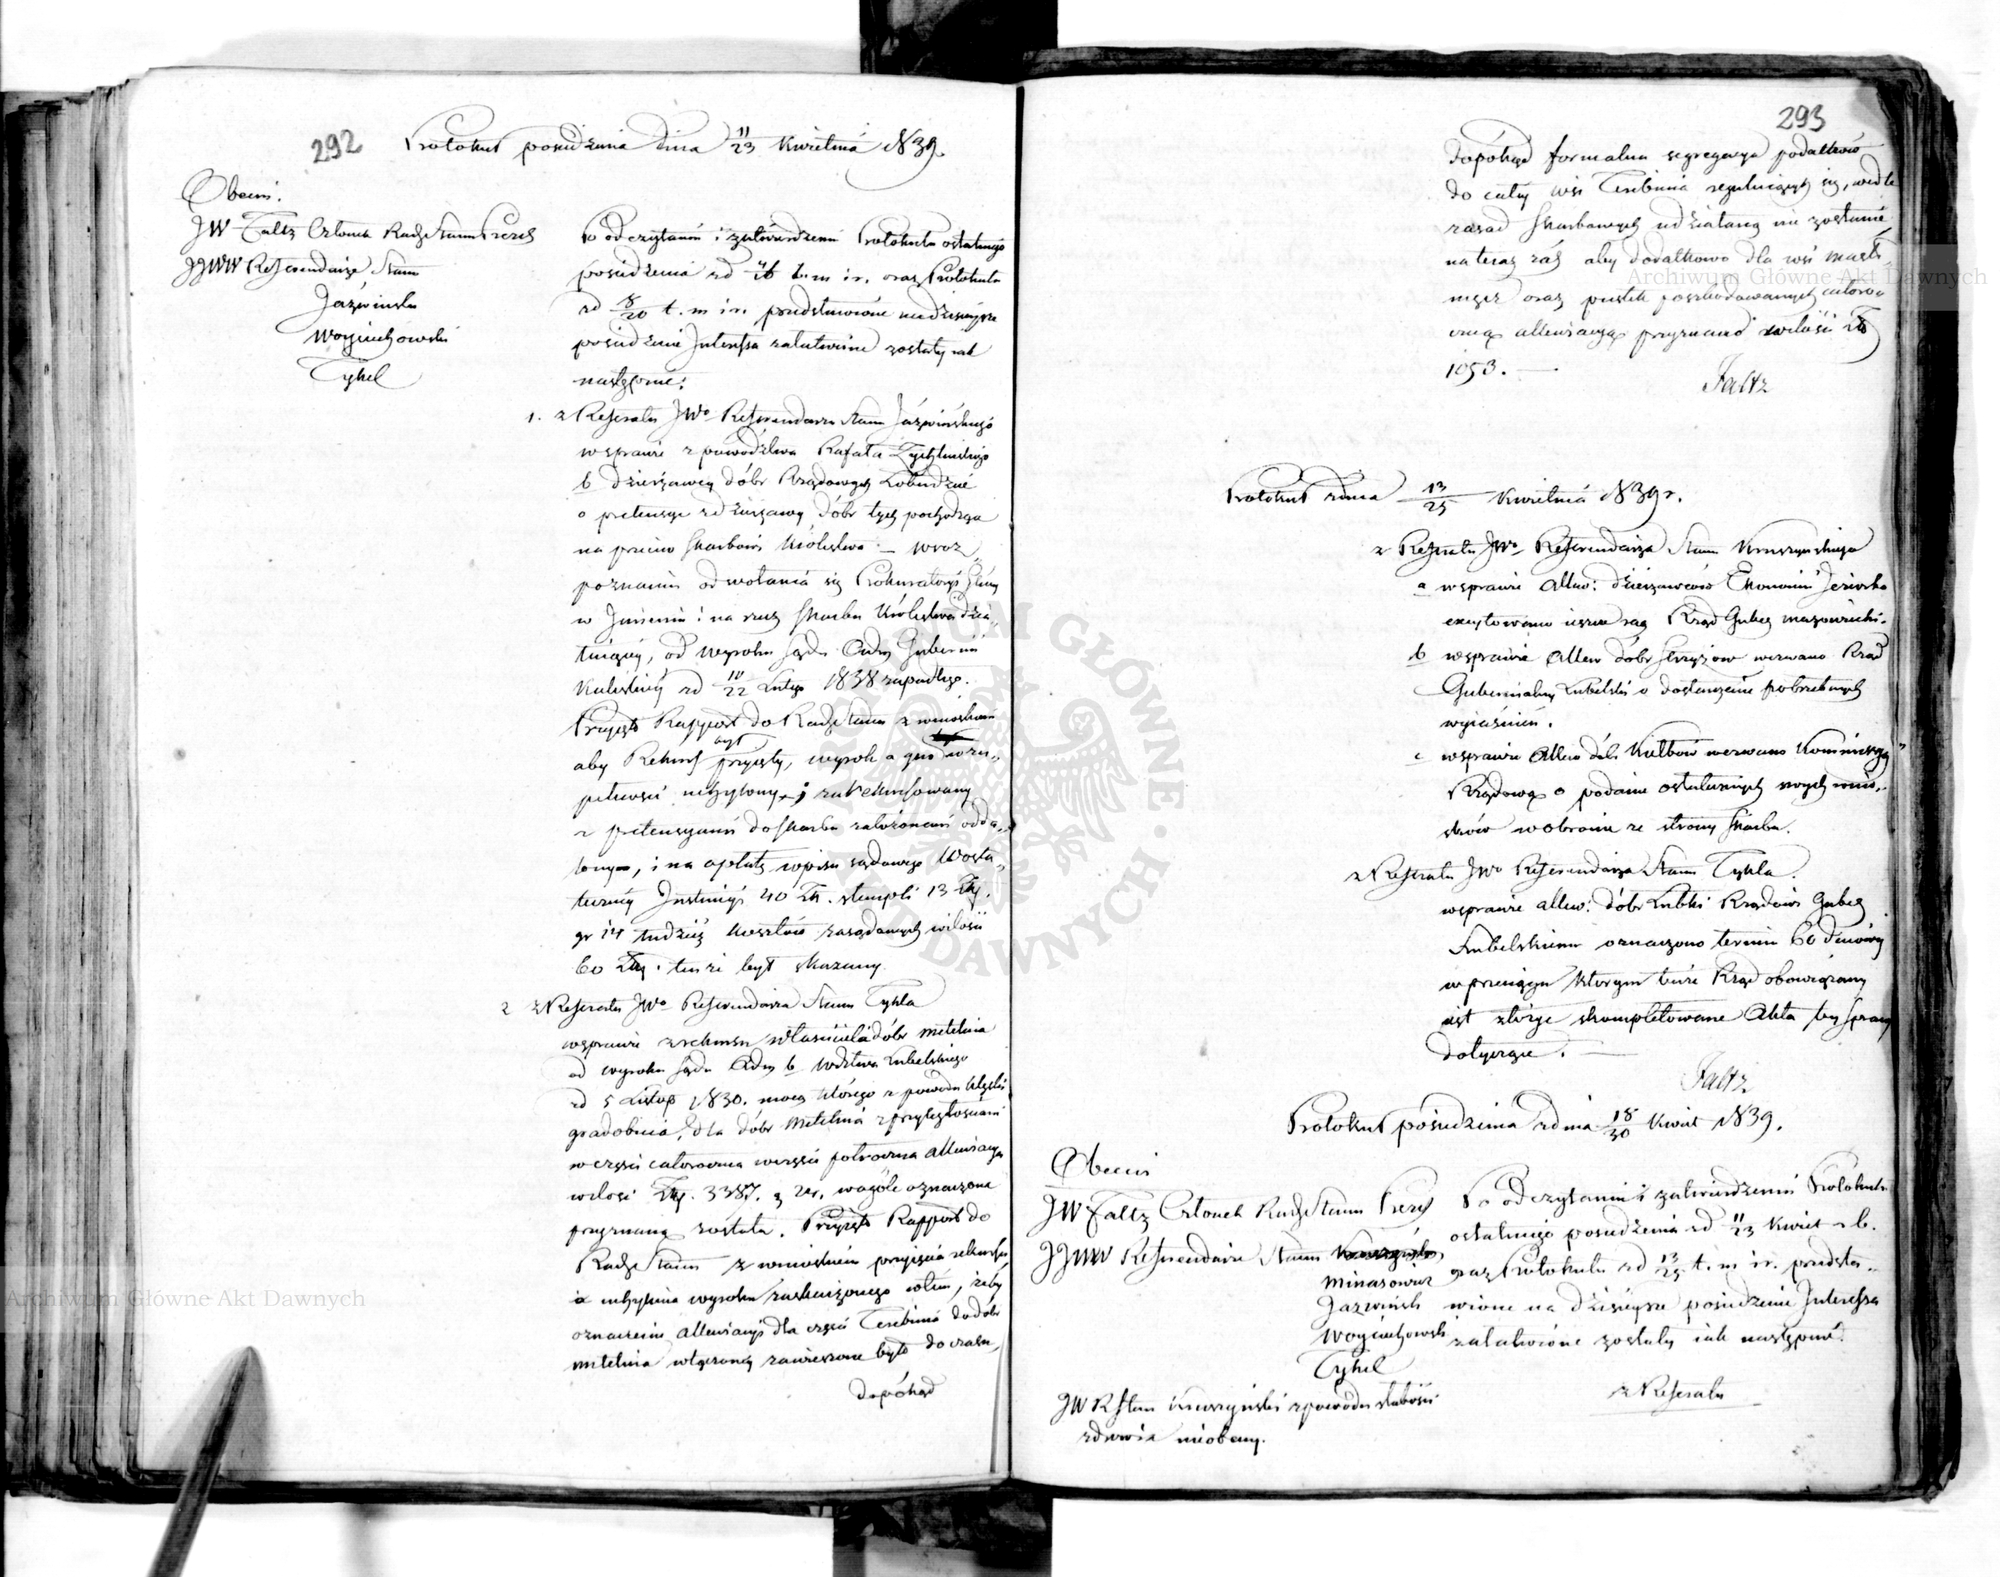 292
Protokuł posiedzenia dnia 11/23 Kwietnia 1839.
Obecni.
JW Faltz Członek Rady Stanu Prezes
JJWW Referendarze Stanu
Jaźwiński
Woyciechowski
Tykel
Po odczytaniu i zatwierdzeniu Protokułu ostatniego
posiedzenia zd t. m i r. oraz Protokułu
zd 8/20 t. m i r. przedstawione na dzisieysze
posiedzenie Interessa załatwione zostały iak
następuie:
1. z Referatu JWo Referendarza Stanu Jaźwińskiego
w sprawie z powództwa Rafała Zychlińskiego
b dzierżawcy dóbr Rządowych Łobudzic
o pretensye z dzierżawy dóbr tych pochodzące
na przeciw Skarbowi Królestwa — wraz
poznaniu odwołania się Prokuratoryi Glney
w Imieniu i na rzecz Skarbu Królestwa dzia„
łaiącey, od wyroku Sądu Adm Gubernii
Kaliskiey zd 10/22 Lutego 1838 zapadłego.
Przyięto Rapport do Rady Stanu z wnioskiem
aby Rekurs był przyięty, wyrok a quo w zu„
pełności uchylony, i zarekursowany
z pretensyami do Skarbu założonemi odda„
lony, i na opłatę wpisu sądowego w osta„
teczney Instancyi 40 Złp. stempli 13 Złp.
gr 14 tudzież kosztów zasądzonych w ilości
60 Złp. tenże był skazany.
2 z Referatu JWo Referendarza Stanu Tykla
w sprawie z rekursu właściciela dóbr Mętelnia
od wyroku Sądu Adm b Wdztwa Lubelskiego
zd 5 Listop 1830. mocą którego z powodu klęski
gradobicia, dla dóbr z przyległościami
w części całoroczna w części półroczna allewiacya
w ilości Złp. 3387. g 24. w ogóle oznaczona
przyznaną została. Przyięto Rapport do
Rady Stanu z wnioskiem przyięcia rekursu
a uchylenia wyroku zaskarżonego w tem, żeby
oznaczenie allewiacyi dla części Terebinia do dóbr
włączoney zawieszone było do czasu,
dopókąd
293
dopókąd formalna segregacya podatków
do całey wsi Terebinia regulujących się, wedle
zasad Skarbowych udziałaną nie zostanie,
na teraz zaś aby dodatkowo dla wsi
oraz pustek poszkodowanych całoro„
czną allewiacyą przyznano w ilości Złp
1053. —
Faltz
Protokuł z dnia 13/25 Kwietnia 1839 r.
z Referatu JWo Referendarza Stanu Kruszyńskiego
a w sprawie allew: dzierżawców Ekonomii Jeziorko
excytowano ieszcze raz Rząd Guber Mazowiecki.
b w sprawie allew dóbr Stryżow wezwano Rząd
Gubernialny Lubelski o dostarczenie potrzebnych
wyiaśnień.
c w sprawie allew dóbr Kiełbów wezwano Kommissyą
Rządową o podanie ostatecznych swych wnio„
sków w obronie ze strony Skarbu.
z Referatu JWo Referendarza Stanu Tykla.
w sprawie allew: dóbr Lubki Rządowi Guber
Lubelskiemu oznaczono termin 60 dniowy
w przeciągu którym tenże Rząd obowiązany
iest złożyć skompletowane Akta tey Sprawy
dotyczące. —
Faltz
Protokuł posiedzenia zd nia 18/30 Kwiet 1839.
Obecni
JW Faltz Członek Rady Stanu Prezes
JJWW Referendarze Stanu
Minasowicz
Jaźwiński
Woyciechowski
Tykel
JW R Stanu Kruszyński z powodu słabości
zdrowia nieobecny.
Po odczytaniu i zatwierdzeniu Protokułu
ostatniego posiedzenia zd 11/23 Kwiet r b.
oraz Protokułu zd 13/25 t. m i r. przedsta„
wione na dzisieysze posiedzenie Interessa
załatwione zostały iak następuie:
z Referatu
Archiwum Główne Akt Dawnych
Archiwum Główne Akt Dawnych